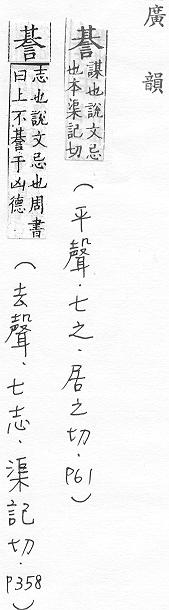 廣韻
諅
謀也說文忌
也本渠記切
（平聲．七之．居之切．P61）
諅
志也說文忌也周書
曰上不諅于凶德
（去聲．七志．渠記切．P358）